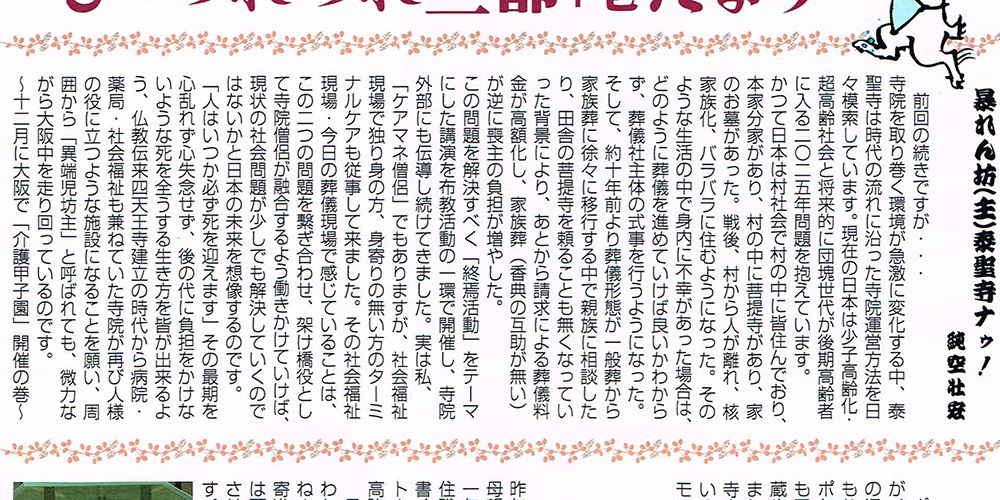 暴れん坊(主)泰聖寺ナゥ！
純空壮宏
前回の続きですが・・・
寺院を取り巻く環境が急激に変化する中、泰
聖寺は時代の流れに沿った寺院運営方法を日
々模索しています。現在の日本は少子高齢化・
超高齢社会と将来的に団塊世代が後期高齢者
に入る二〇二五年問題を抱えています。
かつて日本は村社会で村の中に皆住んでおり、
本家分家があり、村の中に菩提寺があり、家
のお墓があった。戦後、村から人が離れ、核
家族化、バラバラに住むようになった。その
ような生活の中で身内に不幸があった場合は、
どのように葬儀を進めていけば良いかわから
ず、葬儀社主体の式事を行うようになった。
そして、約十年前より葬儀形態が一般葬から
家族葬に徐々に移行する中で親族に相談した
り、田舎の菩提寺を頼ることも無くなってい
った背景により、あとから請求による葬儀料
金が高額化し、家族葬（香典の互助が無い）
が逆に喪主の負担が増やした。
この問題を解決すべく「終焉活動」をテーマ
にした講演を布教活動の一環で開催し、寺院
外部にも伝導し続けてきました。実は私、
「ケアマネ僧侶」でもありますが、社会福祉
現場で独り身の方、身寄りの無い方のターミ
ナルケアも従事して来ました。その社会福祉
現場・今日の葬儀現場で感じていることは、
この二つの問題を繋ぎ合わせ、架け橋役とし
て寺院僧侶が融合するよう働きかけていけば、
現状の社会問題が少しでも解決していくので
はないかと日本の未来を想像するのです。
「人はいつか必ず死を迎えます」その最期を
心乱れず心失念せず、後の代に負担をかけな
いような死を全うする生き方を皆が出来るよ
う、仏教伝来四天王寺建立の時代から病院・
薬局・社会福祉も兼ねていた寺院が再び人様
の役に立つような施設になることを願い、周
囲から「異端児坊主」と呼ばれても、微力な
がら大阪中を走り回っているのです。
～十二月に大阪で「介護甲子園」開催の巻～